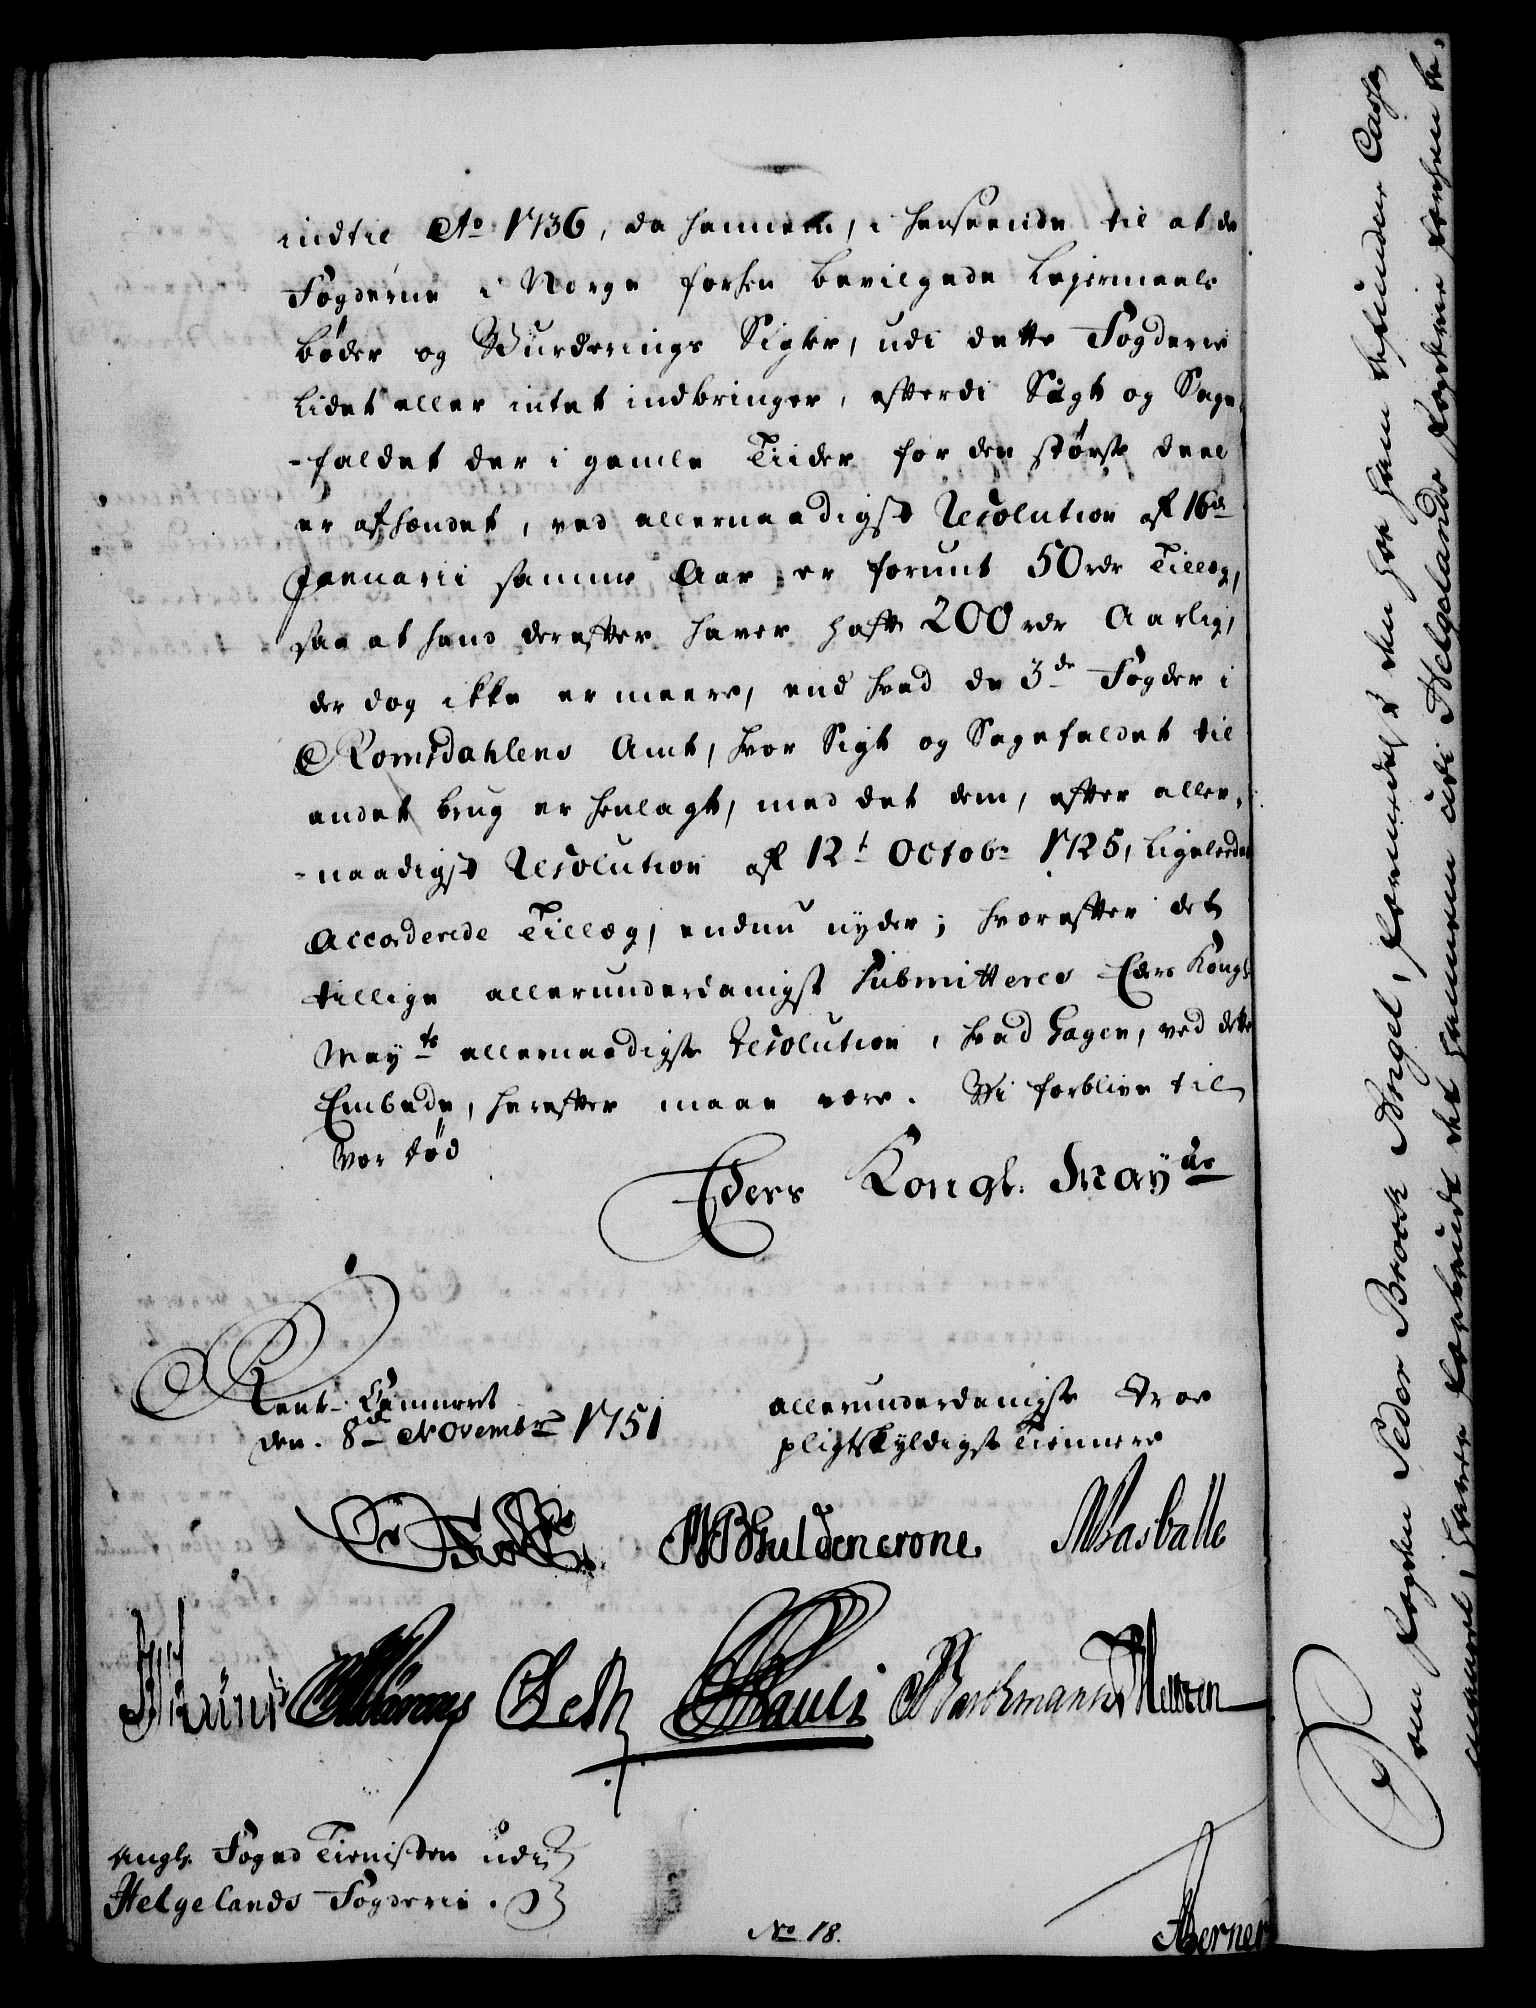 indtil Ao 1736, da hannem, i henseende til at de
Fogderne i Norge forhen bevilgede Leyermaals
bøder og Vurderings Sigter, udi dette Fogderie
lidet eller intet indbringer, efterdi Sigt og Sage-
-faldet der i gamle Tiider for den største deel
er afhændet, ved allernaadigst Resolution af 16de
Januarii samme Aar er forunt 50 rdr Tillæg,
saa at hand derefter haver haft 200 rdr Aarlig,
der dog ikke er meere, end hvad de 3de Fogder i
Romsdahlens Amt, hvor Sigt og Sagefaldet til
andet brug er henlagt, med det dem, efter aller-
-naadigst Resolution af 12t Octobr 1725, ligeledes
Accorderede Tillæg, endnu nyder; hvorefter det
tillige allerunderdanigst submitteres Eders Kongl
Mayts allernaadigste Resolution, hvad Gagen, ved dette
Embede, herefter maae være. Vi forblive til
vor død
Eders Kongl. Mayts
Rent-Cammeret
den. 8de Novembr 1751
allerunderdanigste troe
pligtskyldigst Tiennere
Guldencrone
Rasballe
Pauli
Barthmand
Angl. Foged Tienisten udi
Helgelands Fogderie.
No 18.
Berner
Som Fogden Peder Broch Angel, formedelst den hos ham befundne Cassa
mangel, haver forbrudt det hannem udi Helgelands Fogderie forhen be-